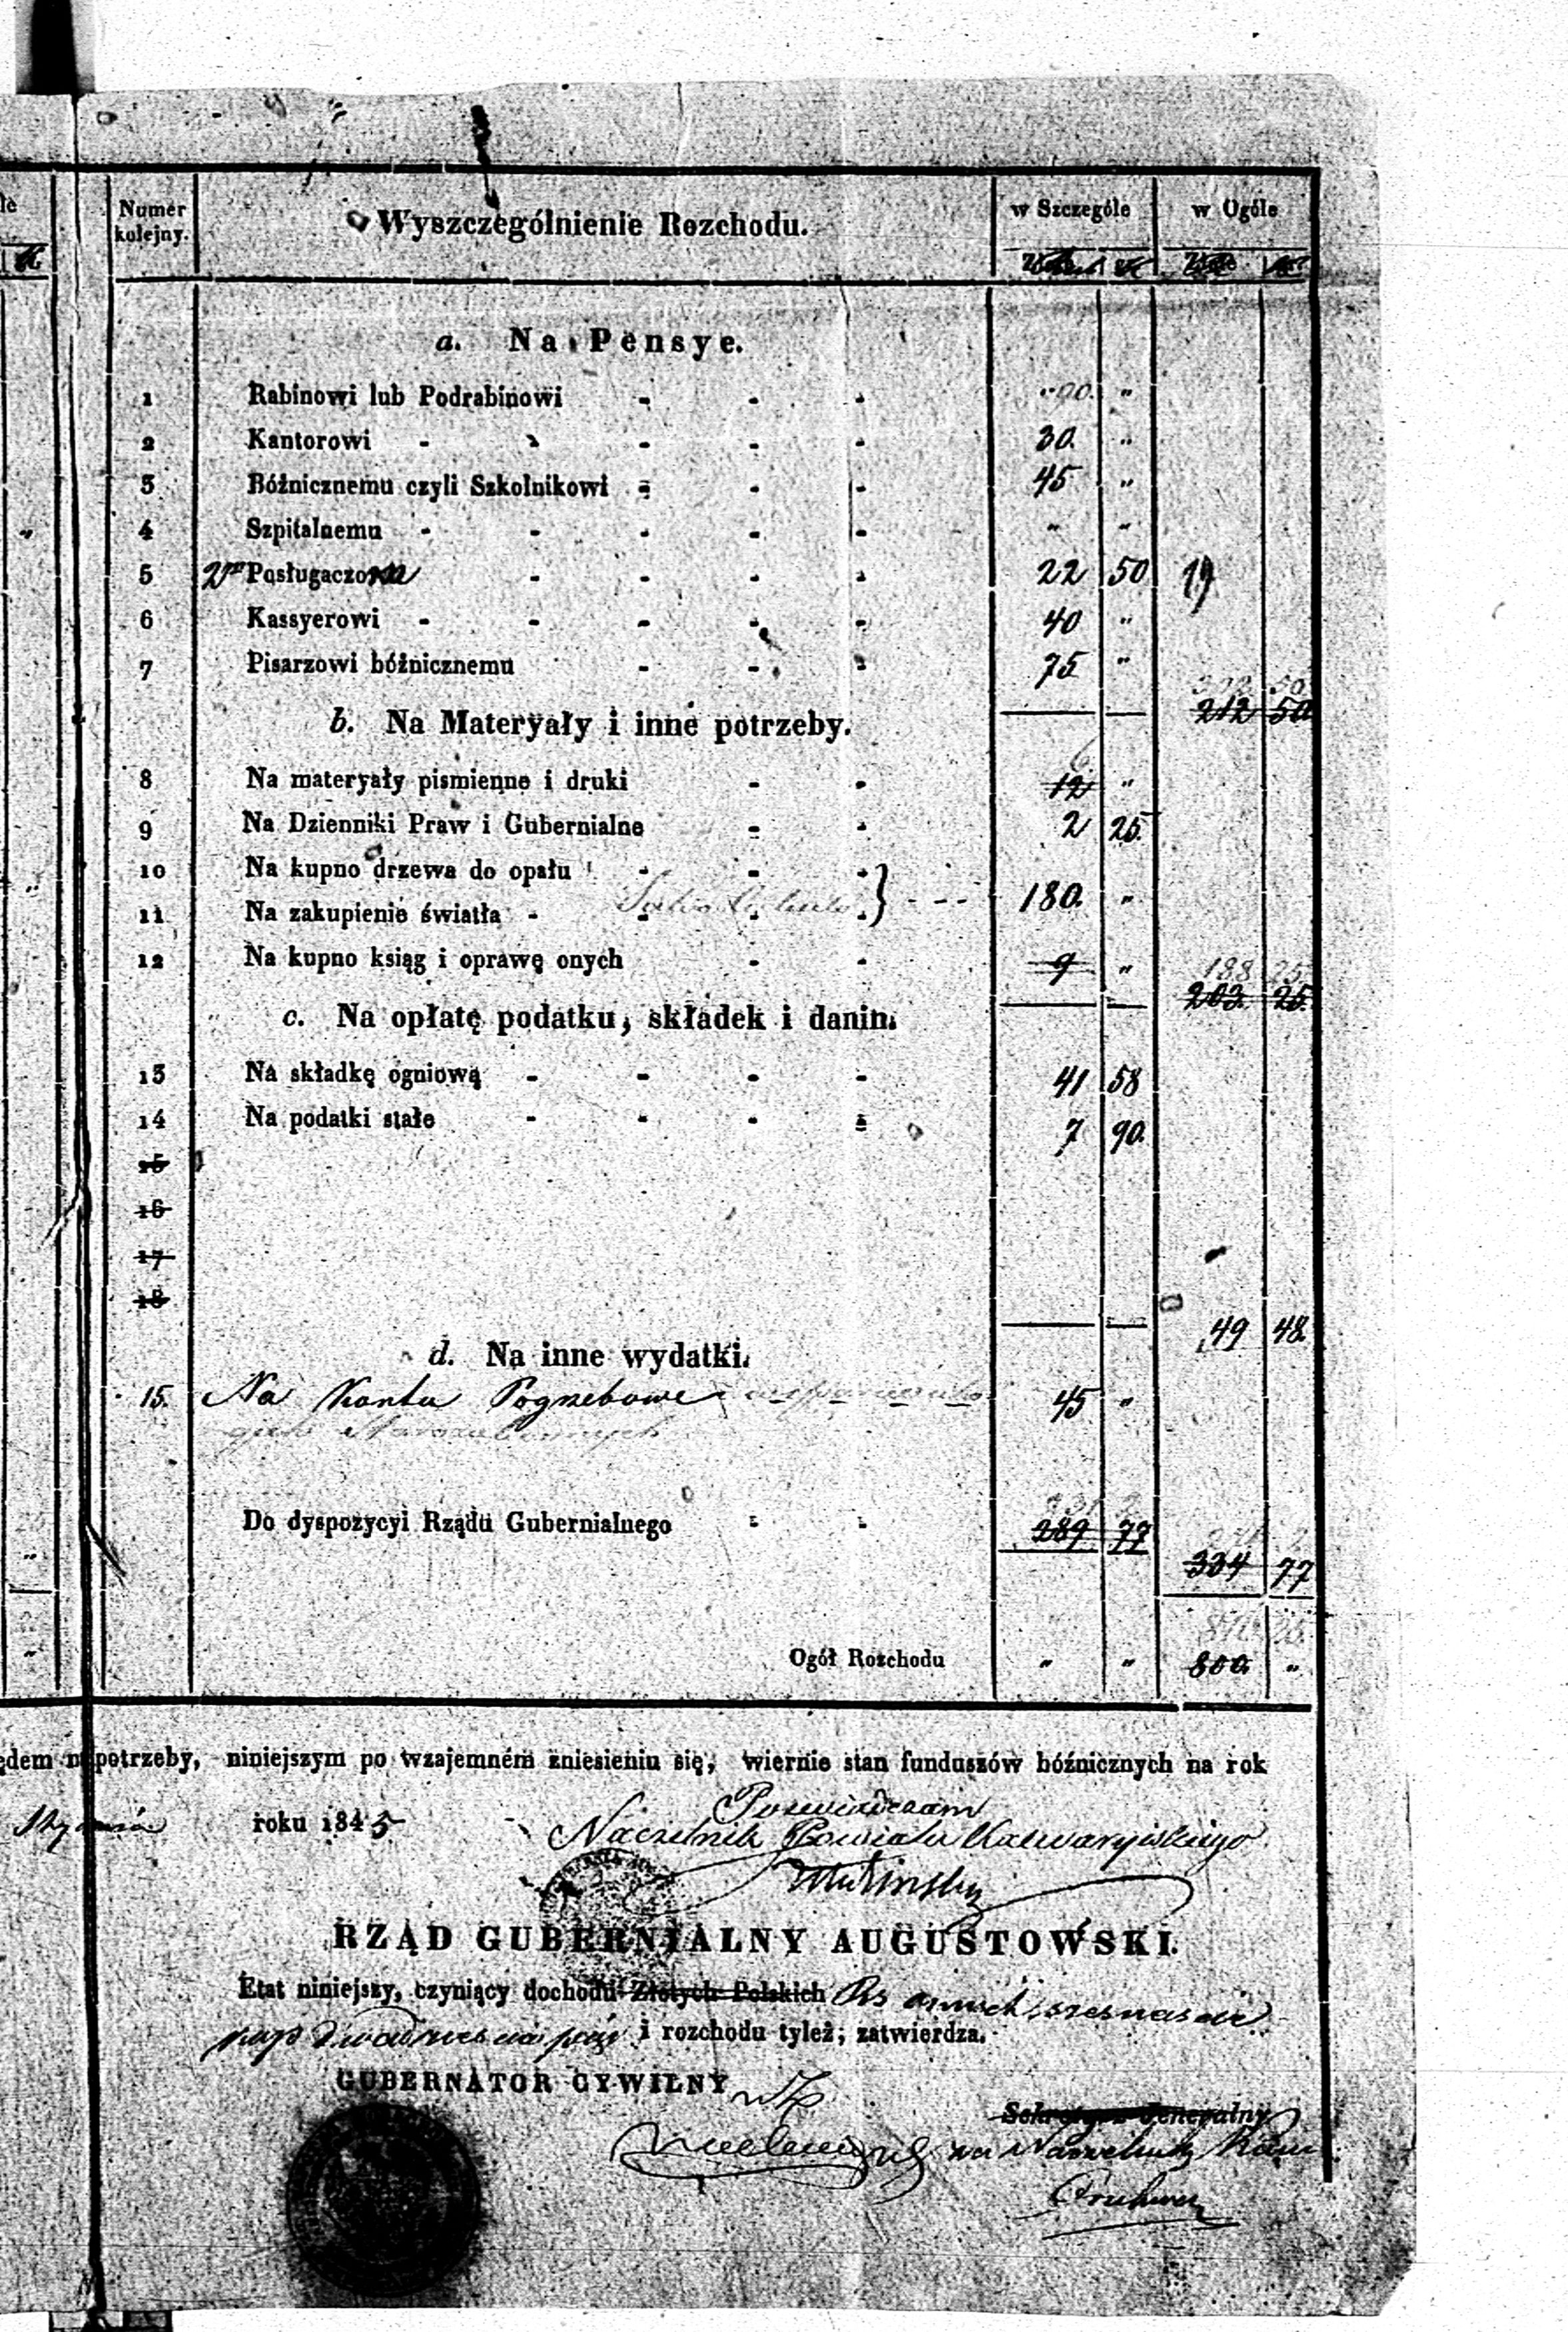 Numer kolejny. Wyszczególnienie Rozchodu. w Szczególe w Ogóle
a. Na Pensye.
1 Rabinowi lub Podrabinowi - - - 90. "
2 Kantorowi - - - - - 30. "
3 Bóźnicznemu czyli Szkolnikowi - - - 45 "
4 Szpitalnemu - - - - - " "
5 Posługaczo - - - - 22 50 19
6 Kassyerowi - - - - - 40 "
7 Pisarzowi bóźnicznemu - - - 75 "
50
212 50
b. Na Materyały i inne potrzeby.
6
8 Na materyały pismienne i druki - - 12 "
9 Na Dzienniki Praw i Gubernialne - - 2 25.
10 Na kupno drzewa do opału - - -
11 Na zakupienie światła - - - - } - - - 180. "
12 Na kupno ksiąg i oprawę onych - - 9 "
188 25
203. 25.
c. Na opłatę podatku, składek i danin.
13 Na składkę ogniową - - - - 41 58
14 Na podatki stałe - - - - 7 90.
15
16
17
18
49 48.
d. Na inne wydatki.
15. Na Konta Pogrzebowe 45 "
Do dyspozycyi Rządu Gubernialnego - - 289 77
334 77
Ogół Rozchodu " " 800. "
potrzeby, niniejszym po wzajemném zniesieniu się, wiernie stan funduszów bóźnicznych na rok
roku 1845
Poświadczam
Naczelnik Powiatu Kalwaryjskiego
RZĄD GUBERNIALNY AUGUSTOWSKI.
Etat niniejszy, czyniący dochodu Złotych Polskich Rs ośmset szesnaście
kop dwadzieścia pięć i rozchodu tyleż; zatwierdza.
GUBERNATOR CYWILNY
Sekretarz Jeneralny
za Naczelnika